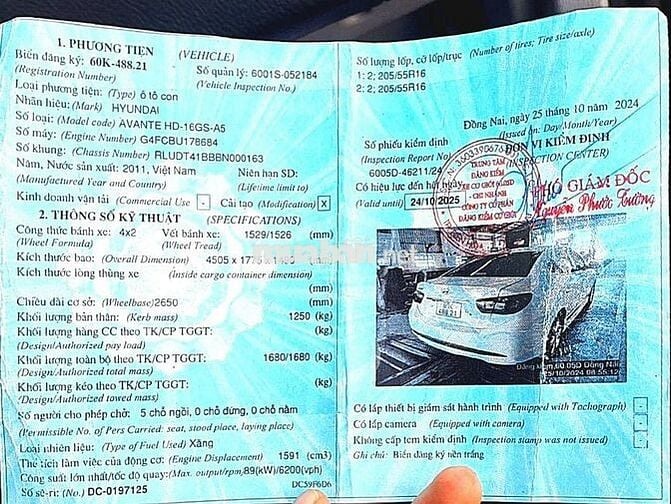 1. PHƯƠNG TIỆN (VEHICLE)
Biển đăng ký: 60K-488.21
(Registration Number)
Số quản lý: 6001S-052184
(Vehicle Inspection No.)
Loại phương tiện: (Type) ô tô con
Nhãn hiệu: (Mark) HYUNDAI
Số loại: (Model code) AVANTE HD-16GS-A5
Số máy: (Engine Number) G4FCBU178684
Số khung: (Chassis Number) RLUDT41BBBN000163
Năm, Nước sản xuất: 2011, Việt Nam
Niên hạn SD:
(Manufactured Year and Country)
(Lifetime limit to)
Kinh doanh vận tải (Commercial Use) - Cải tạo (Modification) X
2. THÔNG SỐ KỸ THUẬT (SPECIFICATIONS)
Công thức bánh xe: 4x2 Vết bánh xe: 1529/1526 (mm)
(Wheel Formula) (Wheel Tread)
Kích thước bao: (Overall Dimension) 4505 x (mm)
Kích thước lòng thùng xe (Inside cargo container dimension)
(mm)
Chiều dài cơ sở: (Wheelbase) 2650 (mm)
Khối lượng bản thân: (Kerb mass) 1250 (kg)
Khối lượng hàng CC theo TK/CP TGGT: (kg)
(Design/Authorized pay load)
Khối lượng toàn bộ theo TK/CP TGGT: 1680/1680 (kg)
(Design/Authorized total mass)
Khối lượng kéo theo TK/CP TGGT: (kg)
(Design/Authorized towed mass)
Số người cho phép chở: 5 chỗ ngồi, 0 chỗ đứng, 0 chỗ nằm
(Permissible No. of Pers Carried: seat, stood place, laying place)
Loại nhiên liệu: (Type of Fuel Used) Xăng
Thể tích làm việc của động cơ: (Engine Displacement) 1591 (cm3)
Công suất lớn nhất/tốc độ quay: (Max. output/rpm) 89(kW)/6200(vph)
Số sê-ri: (No.) DC-0197125
DC59F6D6
Số lượng lốp, cỡ lốp/trục (Number of tires; Tire size/axle)
1: 2; 205/55R16
2: 2; 205/55R16
Đồng Nai, ngày 25 tháng 10 năm 2024
(Issued on: Day/Month/Year)
Số phiếu kiểm định ĐƠN VỊ KIỂM ĐỊNH
(Inspection Report No) (INSPECTION CENTER)
6005D-46211/24
Có hiệu lực đến hết ngày
(Valid until) 24/10/2025
PHÓ GIÁM ĐỐC
Nguyễn Phước Trường
TRUNG TÂM
ĐĂNG KIỂM
XE CƠ GIỚI 6005D
- CHI NHÁNH
CÔNG TY CỔ PHẦN
ĐĂNG KIỂM CƠ GIỚI
Đăng kiểm 60.05D Đồng Nai
25/10/2024 08:55:12
Có lắp thiết bị giám sát hành trình (Equipped with Tachograph)
Có lắp camera (Equipped with camera)
Không cấp tem kiểm định (Inspection stamp was not issued)
Ghi chú: Biển đăng ký nền trắng